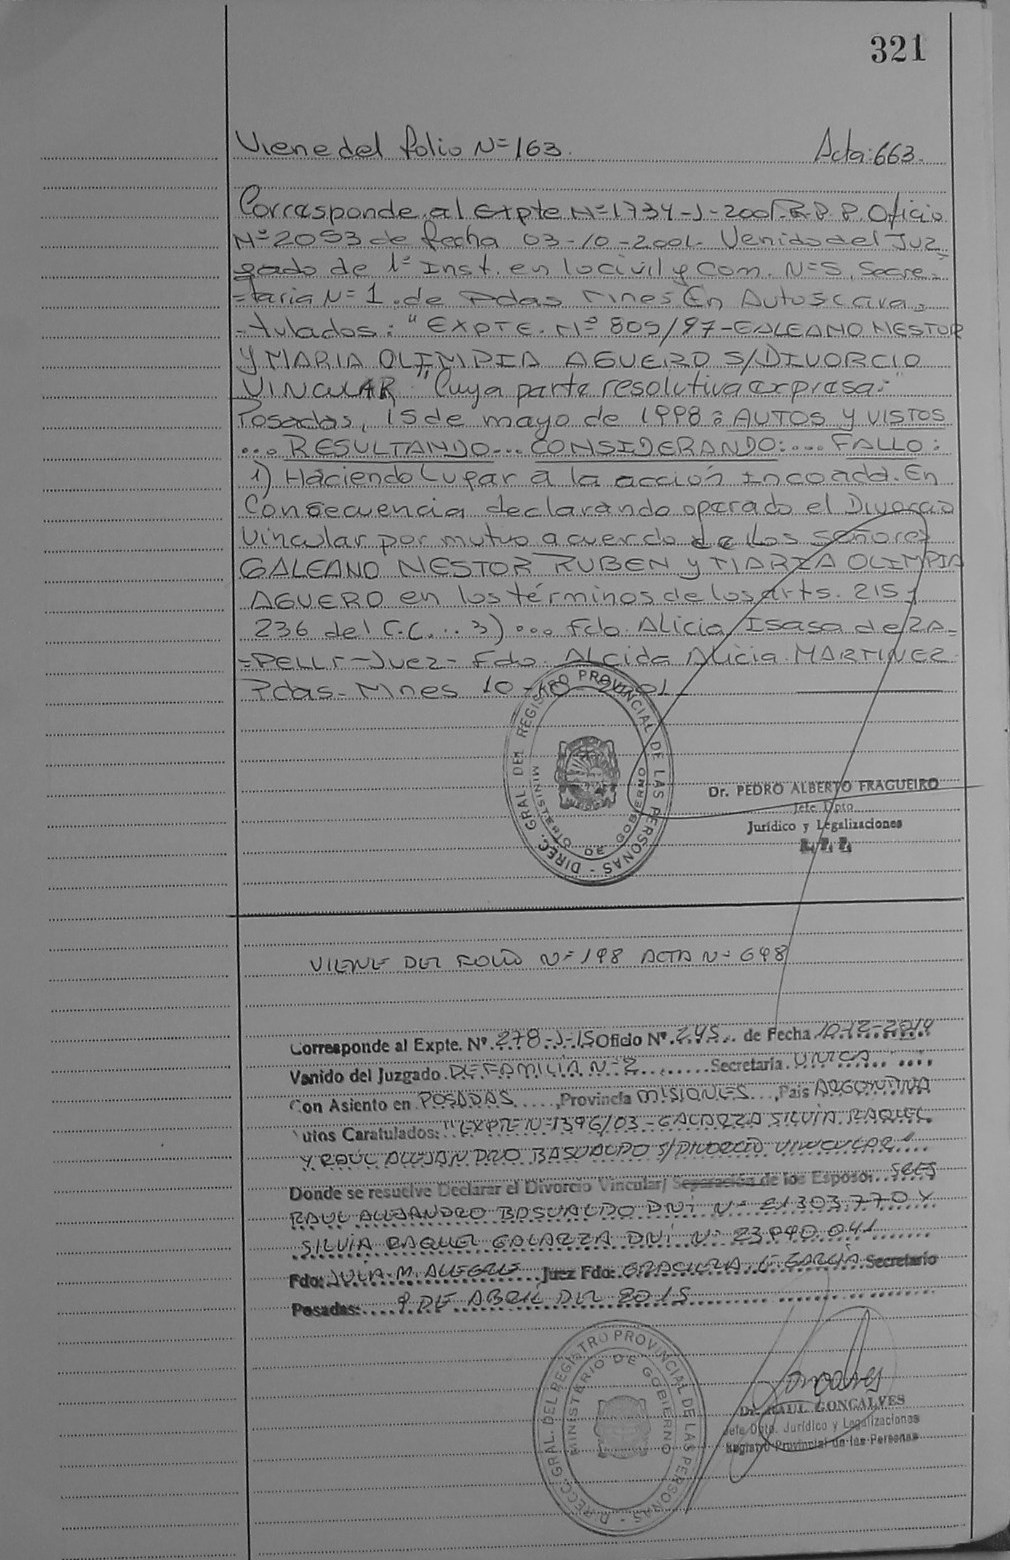 321
Viene del folio Nº 163. Acta: 663.
Corresponde al Expte Nº 1734-J-2001-R.P.P. Oficio
Nº 2053 de fecha 03-10-2001- Venido del Juz
gado de 1º Inst. en lo civil y Com. Nº 5, Secre-
-taria Nº 1 de Pdas Mnes En Autos cara-
-tulados: "EXPTE. Nº 809/97-GALEANO NESTOR
Y MARIA OLIMPIA AGUERO S/DIVORCIO
VINCULAR" Cuya parte resolutiva expresa:"
Posadas, 15 de mayo de 1998: AUTOS Y VISTOS
... RESULTANDO... CONSIDERANDO:... FALLO:
1) Haciendo Lugar a la acción Incoada. En
Consecuencia declarando operado el Divorcio
Vincular por mutuo acuerdo de los señores
GALEANO NESTOR RUBEN y MARIA OLIMPIA
AGUERO en los términos de los arts. 215 y
236 del C.C... 3)... Fdo. Alicia Isasa de ZA-
-PELLI-Juez- Fdo. Alcida Alicia MARTINEZ
Pdas- Mnes 10-10-2001
DIREC. GRAL. DEL REGISTRO PROVINCIAL DE LAS PERSONAS -
MINISTERIO DE GOBIERNO
Dr. PEDRO ALBERTO FRAGUEIRO
Jefe Dpto
Jurídico y Legalizaciones
R. P. P.
VIENE DEL FOLIO Nº 198 ACTA Nº 698
Corresponde al Expte. Nº 278-J-15 Oficio Nº 245.. de Fecha 10-12-2014
Venido del Juzgado DE FAMILIA Nº 2 ....... Secretaría UNICA ....
Con Asiento en POSADAS ....., Provincia MISIONES ..., Pais ARGENTINA
utos Caratulados: "EXPTE Nº 1396/03 - GALARZA SILVIA RAQUEL
Y RAUL ALEJANDRO BASUALDO S/DIVORCIO VINCULAR"
Donde se resuelve Declarar el Divorcio Vincular/ Separación de los Esposos SRES
RAUL ALEJANDRO BASUALDO DNI Nº 21303.770 Y
SILVIA RAQUEL GALARZA DNI Nº 23.990.041
Fdo: JULIA M. ALEGRE Juez Fdo: GRACIELA GARCIA Secretario
Posadas: 9 DE ABRIL DEL 2015
DIRECC. GRAL. DEL REGISTRO PROVINCIAL DE LAS PERSONAS -
MINISTERIO DE GOBIERNO
Dr. RAUL GONCALVES
Jefe Dpto. Jurídico y Legalizaciones
Registro Provincial de las Personas